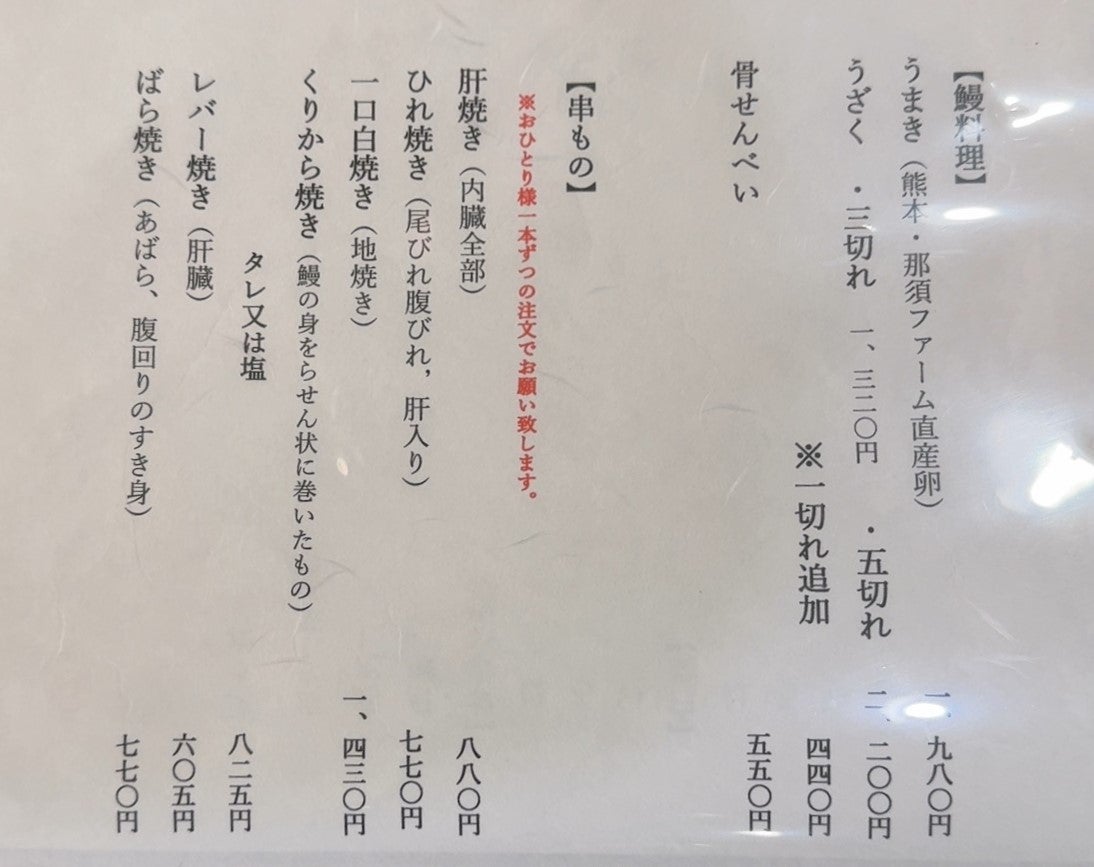 【鰻料理】
うまき（熊本・那須ファーム直産卵） 一、九八〇円
うざく ・三切れ 一、三二〇円 ・五切れ 二、二〇〇円
※一切れ追加 四四〇円
骨せんべい 五五〇円
【串もの】
※おひとり様一本ずつの注文でお願い致します。
肝焼き（内臓全部） 八八〇円
ひれ焼き（尾びれ腹びれ，肝入り） 七七〇円
一口白焼き（地焼き） 一、四三〇円
くりから焼き（鰻の身をらせん状に巻いたもの）
タレ又は塩 八二五円
レバー焼き（肝臓） 六〇五円
ばら焼き（あばら、腹回りのすき身） 七七〇円